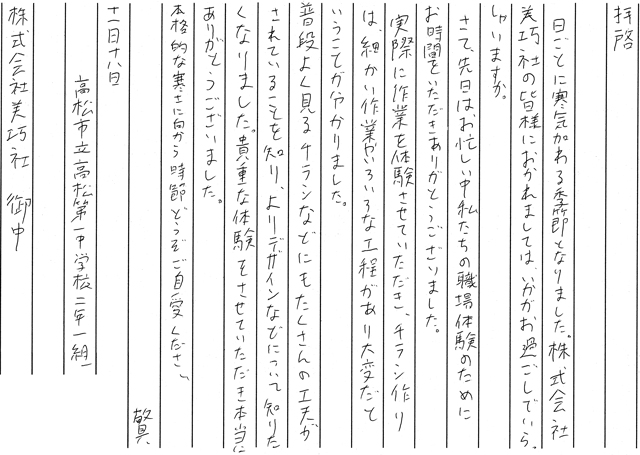 拝啓
日ごとに寒気加わる季節となりました。株式会社
美巧社の皆様におかれましては、いかがお過ごしでいらっ
しゃいますか。
さて、先日はお忙しい中私たちの職場体験のために
お時間をいただきありがとうございました。
実際に作業を体験させていただき、チラシ作り
は、細かい作業やいろいろな工程があり大変だと
いうことが分かりました。
普段よく見るチラシなどにもたくさんの工夫が
されていることを知り、よりデザインなどについて知りた
くなりました。貴重な体験をさせていただき本当に
ありがとうございました。
本格的な寒さに向かう時節どうぞご自愛ください。
敬具
十一月十八日
高松市立高松第一中学校二年一組
株式会社美巧社 御中